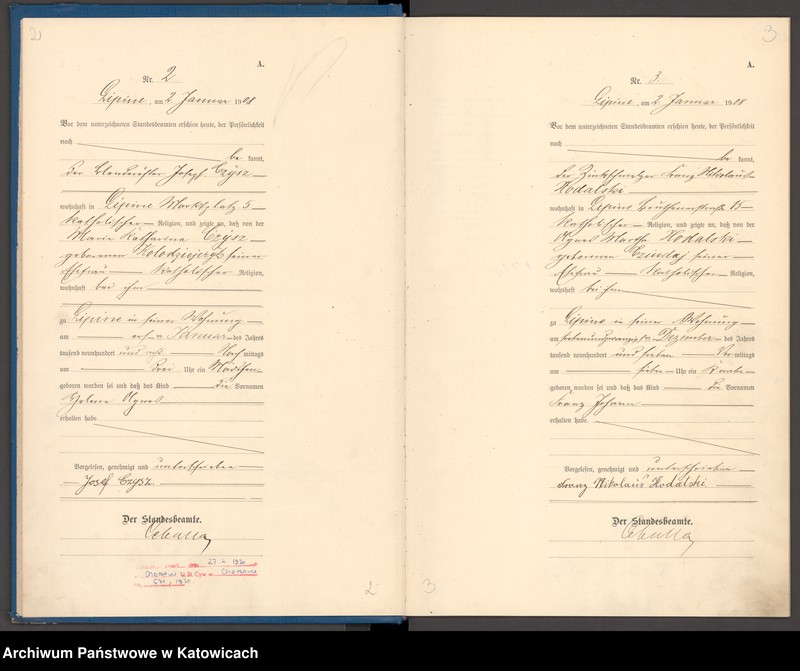 2
A.
Nr. 2
Lipine, am 2 Januar 1908
Vor dem unterzeichneten Standesbeamten erschien heute, der Persönlichkeit
nach
be kannt,
der Josef Czysz
wohnhaft in Lipine Marktplatz 5
katholischer Religion, und zeigte an, daß von der
Maria Katharina Czysz
geborenen Kolodziejczyk seiner
Ehefrau katholischer Religion,
wohnhaft bei ihm
zu Lipine in seiner Wohnung
am ersten Januar des Jahres
tausend neunhundert und acht Nach mittags
um drei Uhr ein Mädchen
geboren worden sei und daß das Kind die Vornamen
Helene Agnes
erhalten habe.
Vorgelesen, genehmigt und unterschrieben
Josef Czysz.
Der Standesbeamte.
Cebulla
27.4. 1930
CHORZÓW CHORZÓW
2
3
A.
Nr. 3.
Lipine, am 2 Januar 1908
Vor dem unterzeichneten Standesbeamten erschien heute, der Persönlichkeit
nach
be kannt,
der Zinkschmelzer Franz Nikolaus
Hodalski
wohnhaft in Lipine Beuthenerstraße 15
katholischer Religion, und zeigte an, daß von der
Agnes Martha Hodalski
geborenen seiner
Ehefrau katholischer Religion,
wohnhaft bei ihm
zu Lipine in seiner Wohnung
am Dezember des Jahres
tausend neunhundert und sieben Vor mittags
um sieben Uhr ein Knabe
geboren worden sei und daß das Kind die Vornamen
Franz Johann
erhalten habe.
Vorgelesen, genehmigt und unterschrieben
Franz Nikolaus Hodalski.
Der Standesbeamte.
Cebulla
3
Archiwum Państwowe w Katowicach